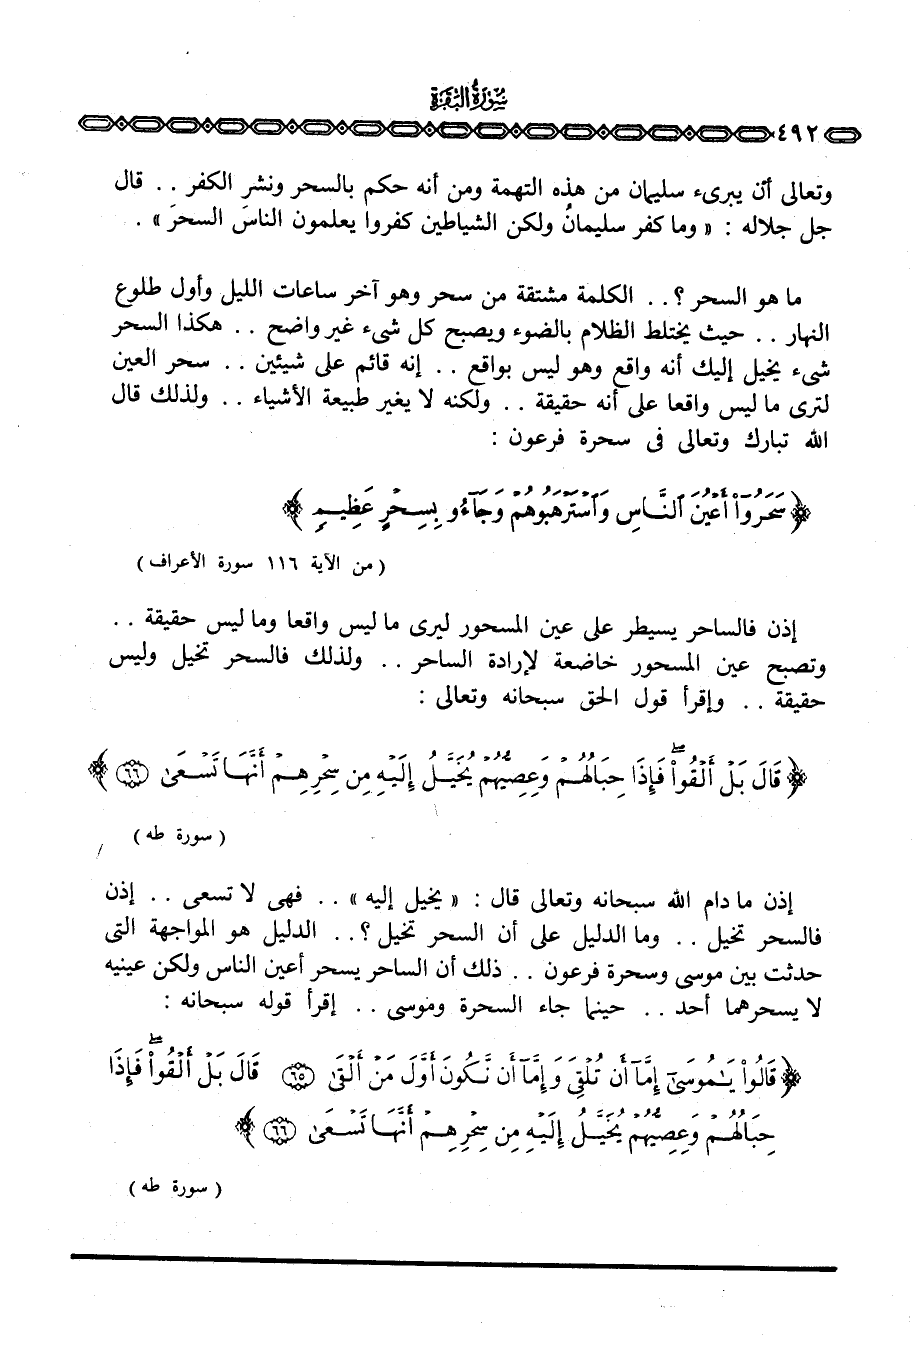 سورة البقرة
٤٩٢
وتعالى أن يبرىء سليمان من هذه التهمة ومن أنه حكم بالسحر ونشر الكفر .. قال
جل جلاله : « وما كفر سليمانُ ولكن الشياطين كفروا يعلمون الناسَ السحرَ » .
ما هو السحر ؟ .. الكلمة مشتقة من سحر وهو آخر ساعات الليل وأول طلوع
النهار .. حيث يختلط الظلام بالضوء ويصبح كل شىء غير واضح .. هكذا السحر
شىء يخيل إليك أنه واقع وهو ليس بواقع .. إنه قائم على شيئين .. سحر العين
لترى ما ليس واقعا على أنه حقيقة .. ولكنه لا يغير طبيعة الأشياء .. ولذلك قال
الله تبارك وتعالى فى سحرة فرعون :
﴿ سَحَرُوٓاْ أَعْيُنَ ٱلنَّاسِ وَٱسْتَرْهَبُوهُمْ وَجَآءُو بِسِحْرٍ عَظِيمٍ ﴾
( من الآية ١١٦ سورة الأعراف )
إذن فالساحر يسيطر على عين المسحور ليرى ما ليس واقعا وما ليس حقيقة ..
وتصبح عين المسحور خاضعة لإرادة الساحر .. ولذلك فالسحر تخيل وليس
حقيقة .. وإقرأ قول الحق سبحانه وتعالى :
﴿ قَالَ بَلْ أَلْقُواْۖ فَإِذَا حِبَالُهُمْ وَعِصِيُّهُمْ يُخَيَّلُ إِلَيْهِ مِن سِحْرِهِمْ أَنَّهَا تَسْعَىٰ ٦٦ ﴾
( سورة طه )
إذن ما دام الله سبحانه وتعالى قال : « يخيل إليه » .. فهى لا تسعى .. إذن
فالسحر تخيل .. وما الدليل على أن السحر تخيل ؟ .. الدليل هو المواجهة التى
حدثت بين موسى وسحرة فرعون .. ذلك أن الساحر يسحر أعين الناس ولكن عينيه
لا يسحرهما أحد .. حينما جاء السحرة وموسى .. إقرأ قوله سبحانه :
﴿ قَالُواْ يَـٰمُوسَىٰٓ إِمَّآ أَن تُلْقِىَ وَإِمَّآ أَن نَّكُونَ أَوَّلَ مَنْ أَلْقَىٰ ٦٥ قَالَ بَلْ أَلْقُواْۖ فَإِذَا
حِبَالُهُمْ وَعِصِيُّهُمْ يُخَيَّلُ إِلَيْهِ مِن سِحْرِهِمْ أَنَّهَا تَسْعَىٰ ٦٦ ﴾
( سورة طه )